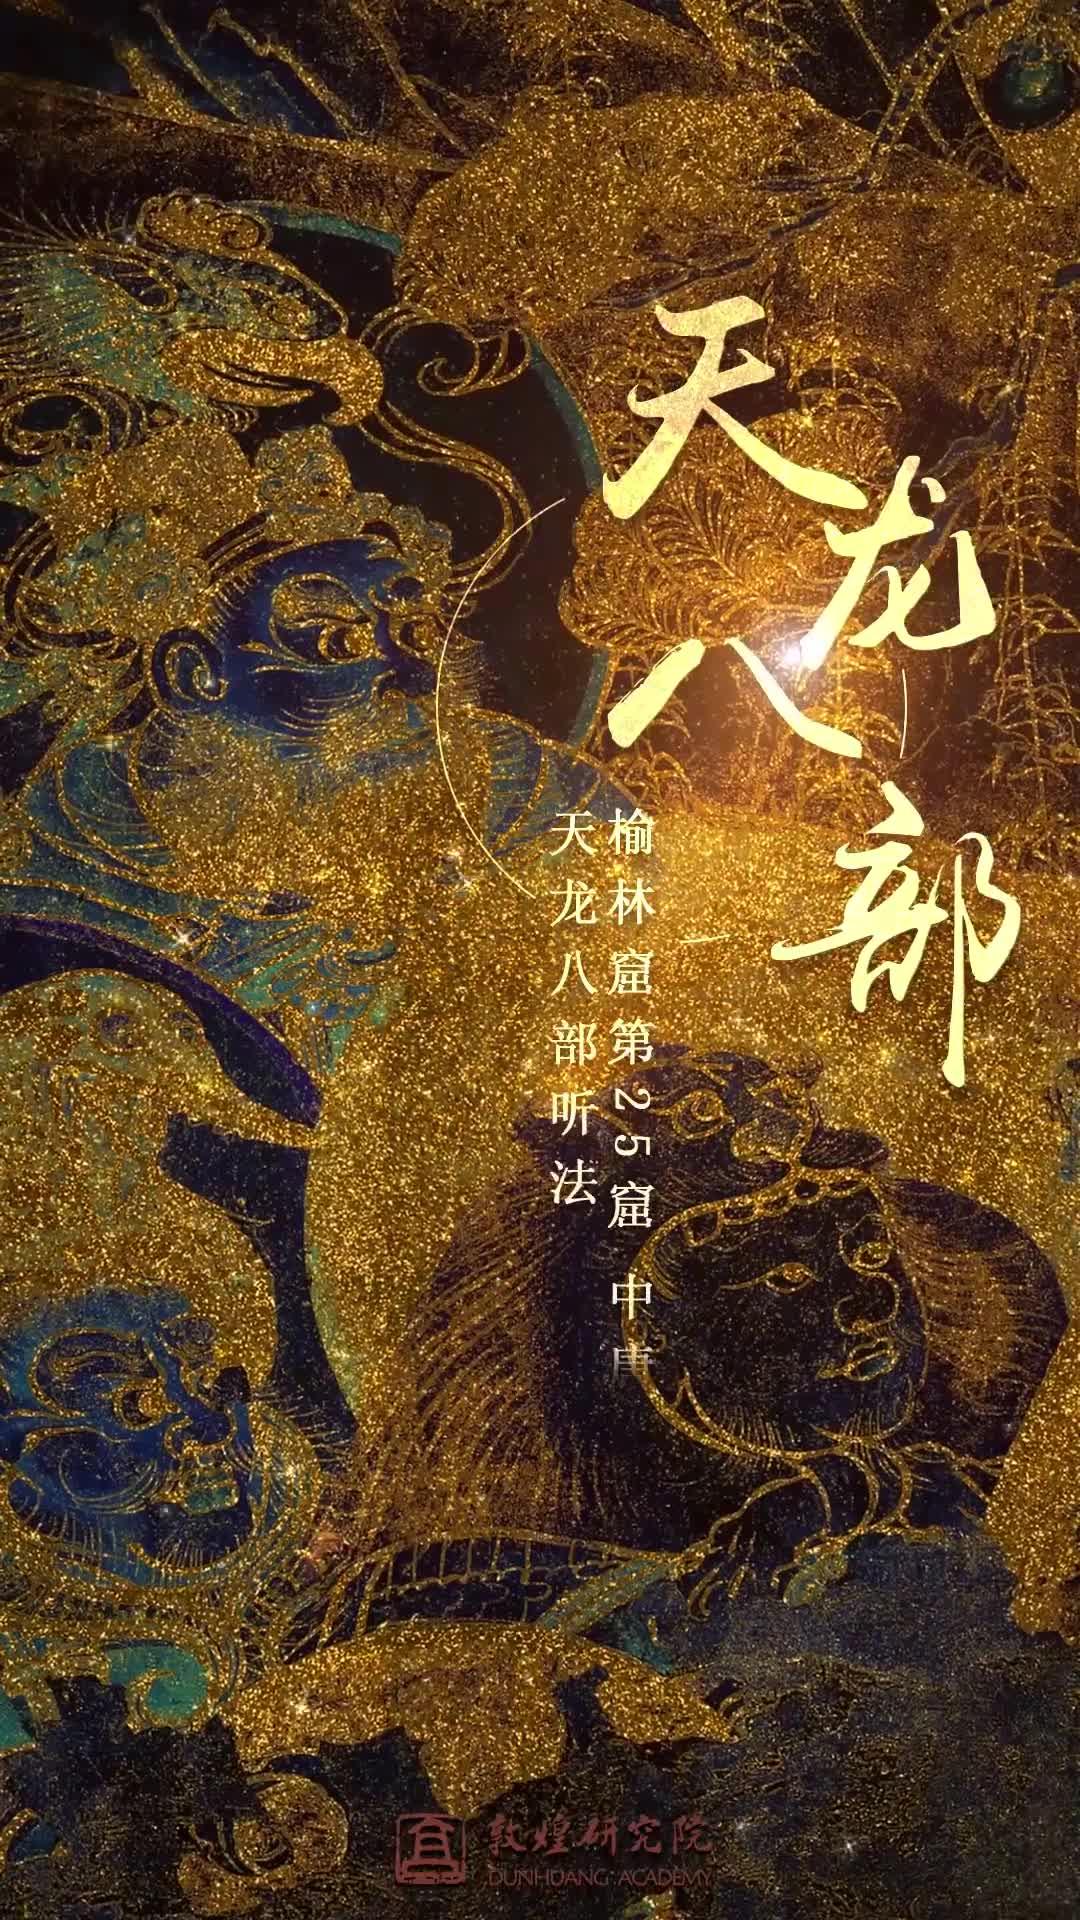 天龙八部
榆林窟第25窟 中唐
天龙八部听法
敦煌研究院
DUNHUANG ACADEMY